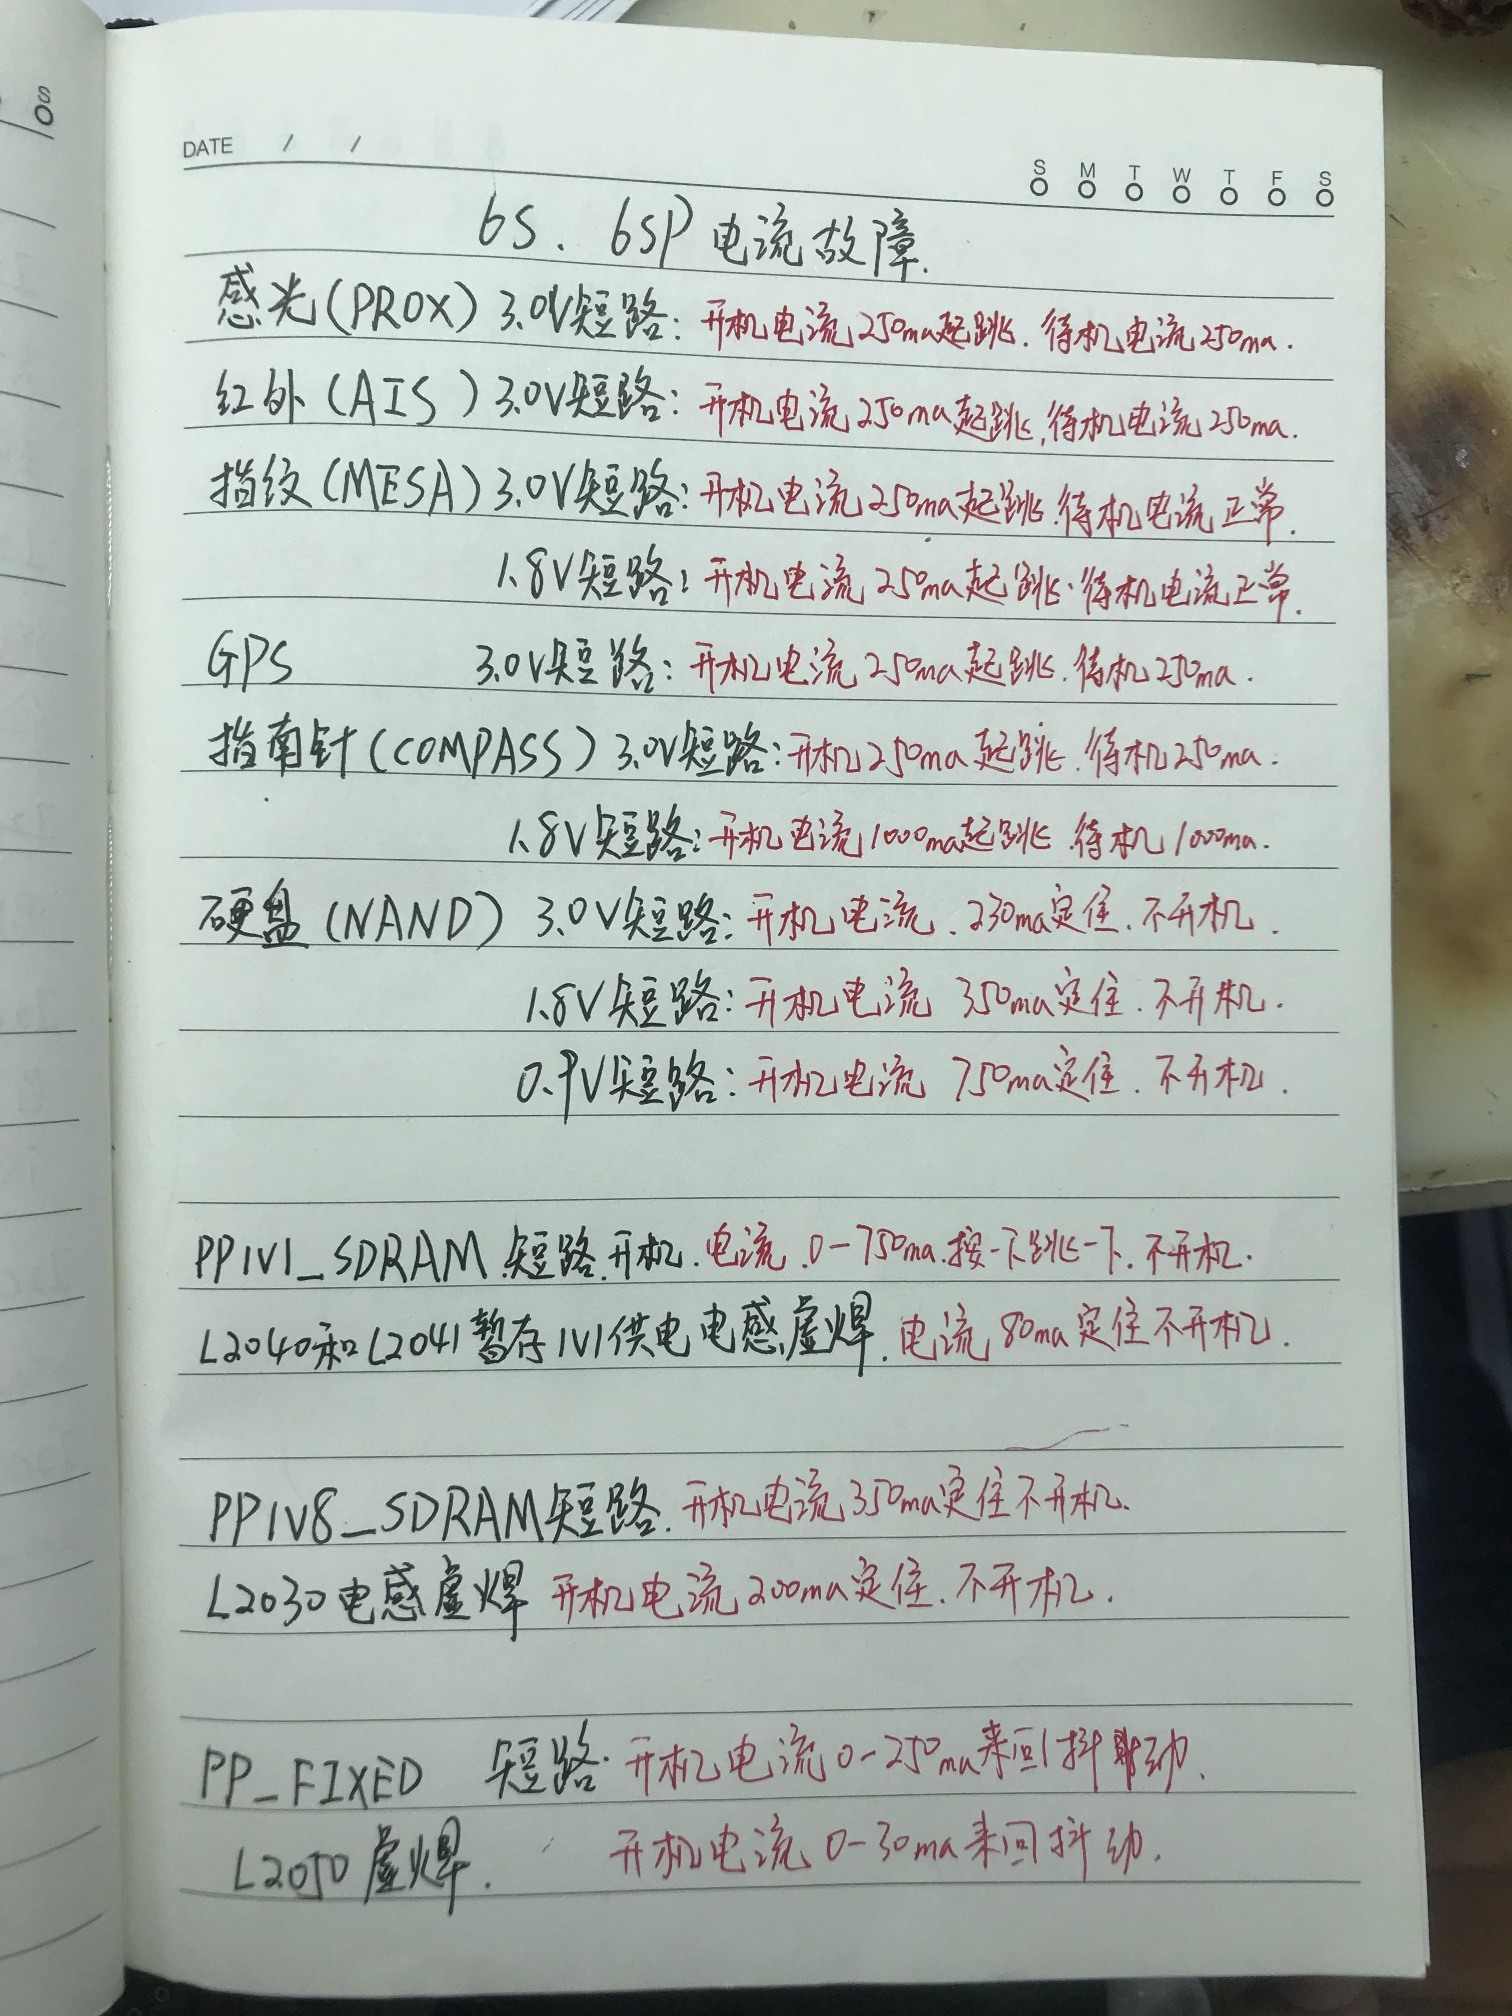 S
DATE / /
S M T W T F S
6S、6SP 电流故障.
感光(PROX) 3.0V短路: 开机电流250ma起跳. 待机电流250ma.
红外(AIS) 3.0V短路: 开机电流250ma起跳,待机电流250ma.
指纹(MESA) 3.0V短路: 开机电流250ma起跳.待机电流正常.
1.8V短路: 开机电流250ma起跳.待机电流正常.
GPS 3.0V短路: 开机电流250ma起跳.待机250ma.
指南针(COMPASS) 3.0V短路: 开机250ma起跳.待机250ma.
1.8V短路: 开机电流1000ma起跳.待机1000ma.
硬盘(NAND) 3.0V短路: 开机电流.230ma定住.不开机.
1.8V短路: 开机电流 350ma定住.不开机.
0.9V短路: 开机电流 750ma定住.不开机.
PP1V1_SDRAM.短路.开机.电流.0-750ma.按一下跳一下.不开机.
L2040和L2041暂存1V1供电电感虚焊.电流80ma定住不开机.
PP1V8_SDRAM短路.开机电流350ma定住不开机.
L2030电感虚焊 开机电流200ma定住.不开机.
PP_FIXED 短路.开机电流0-250ma来回抖动.
L2050虚焊. 开机电流0-30ma来回抖动.